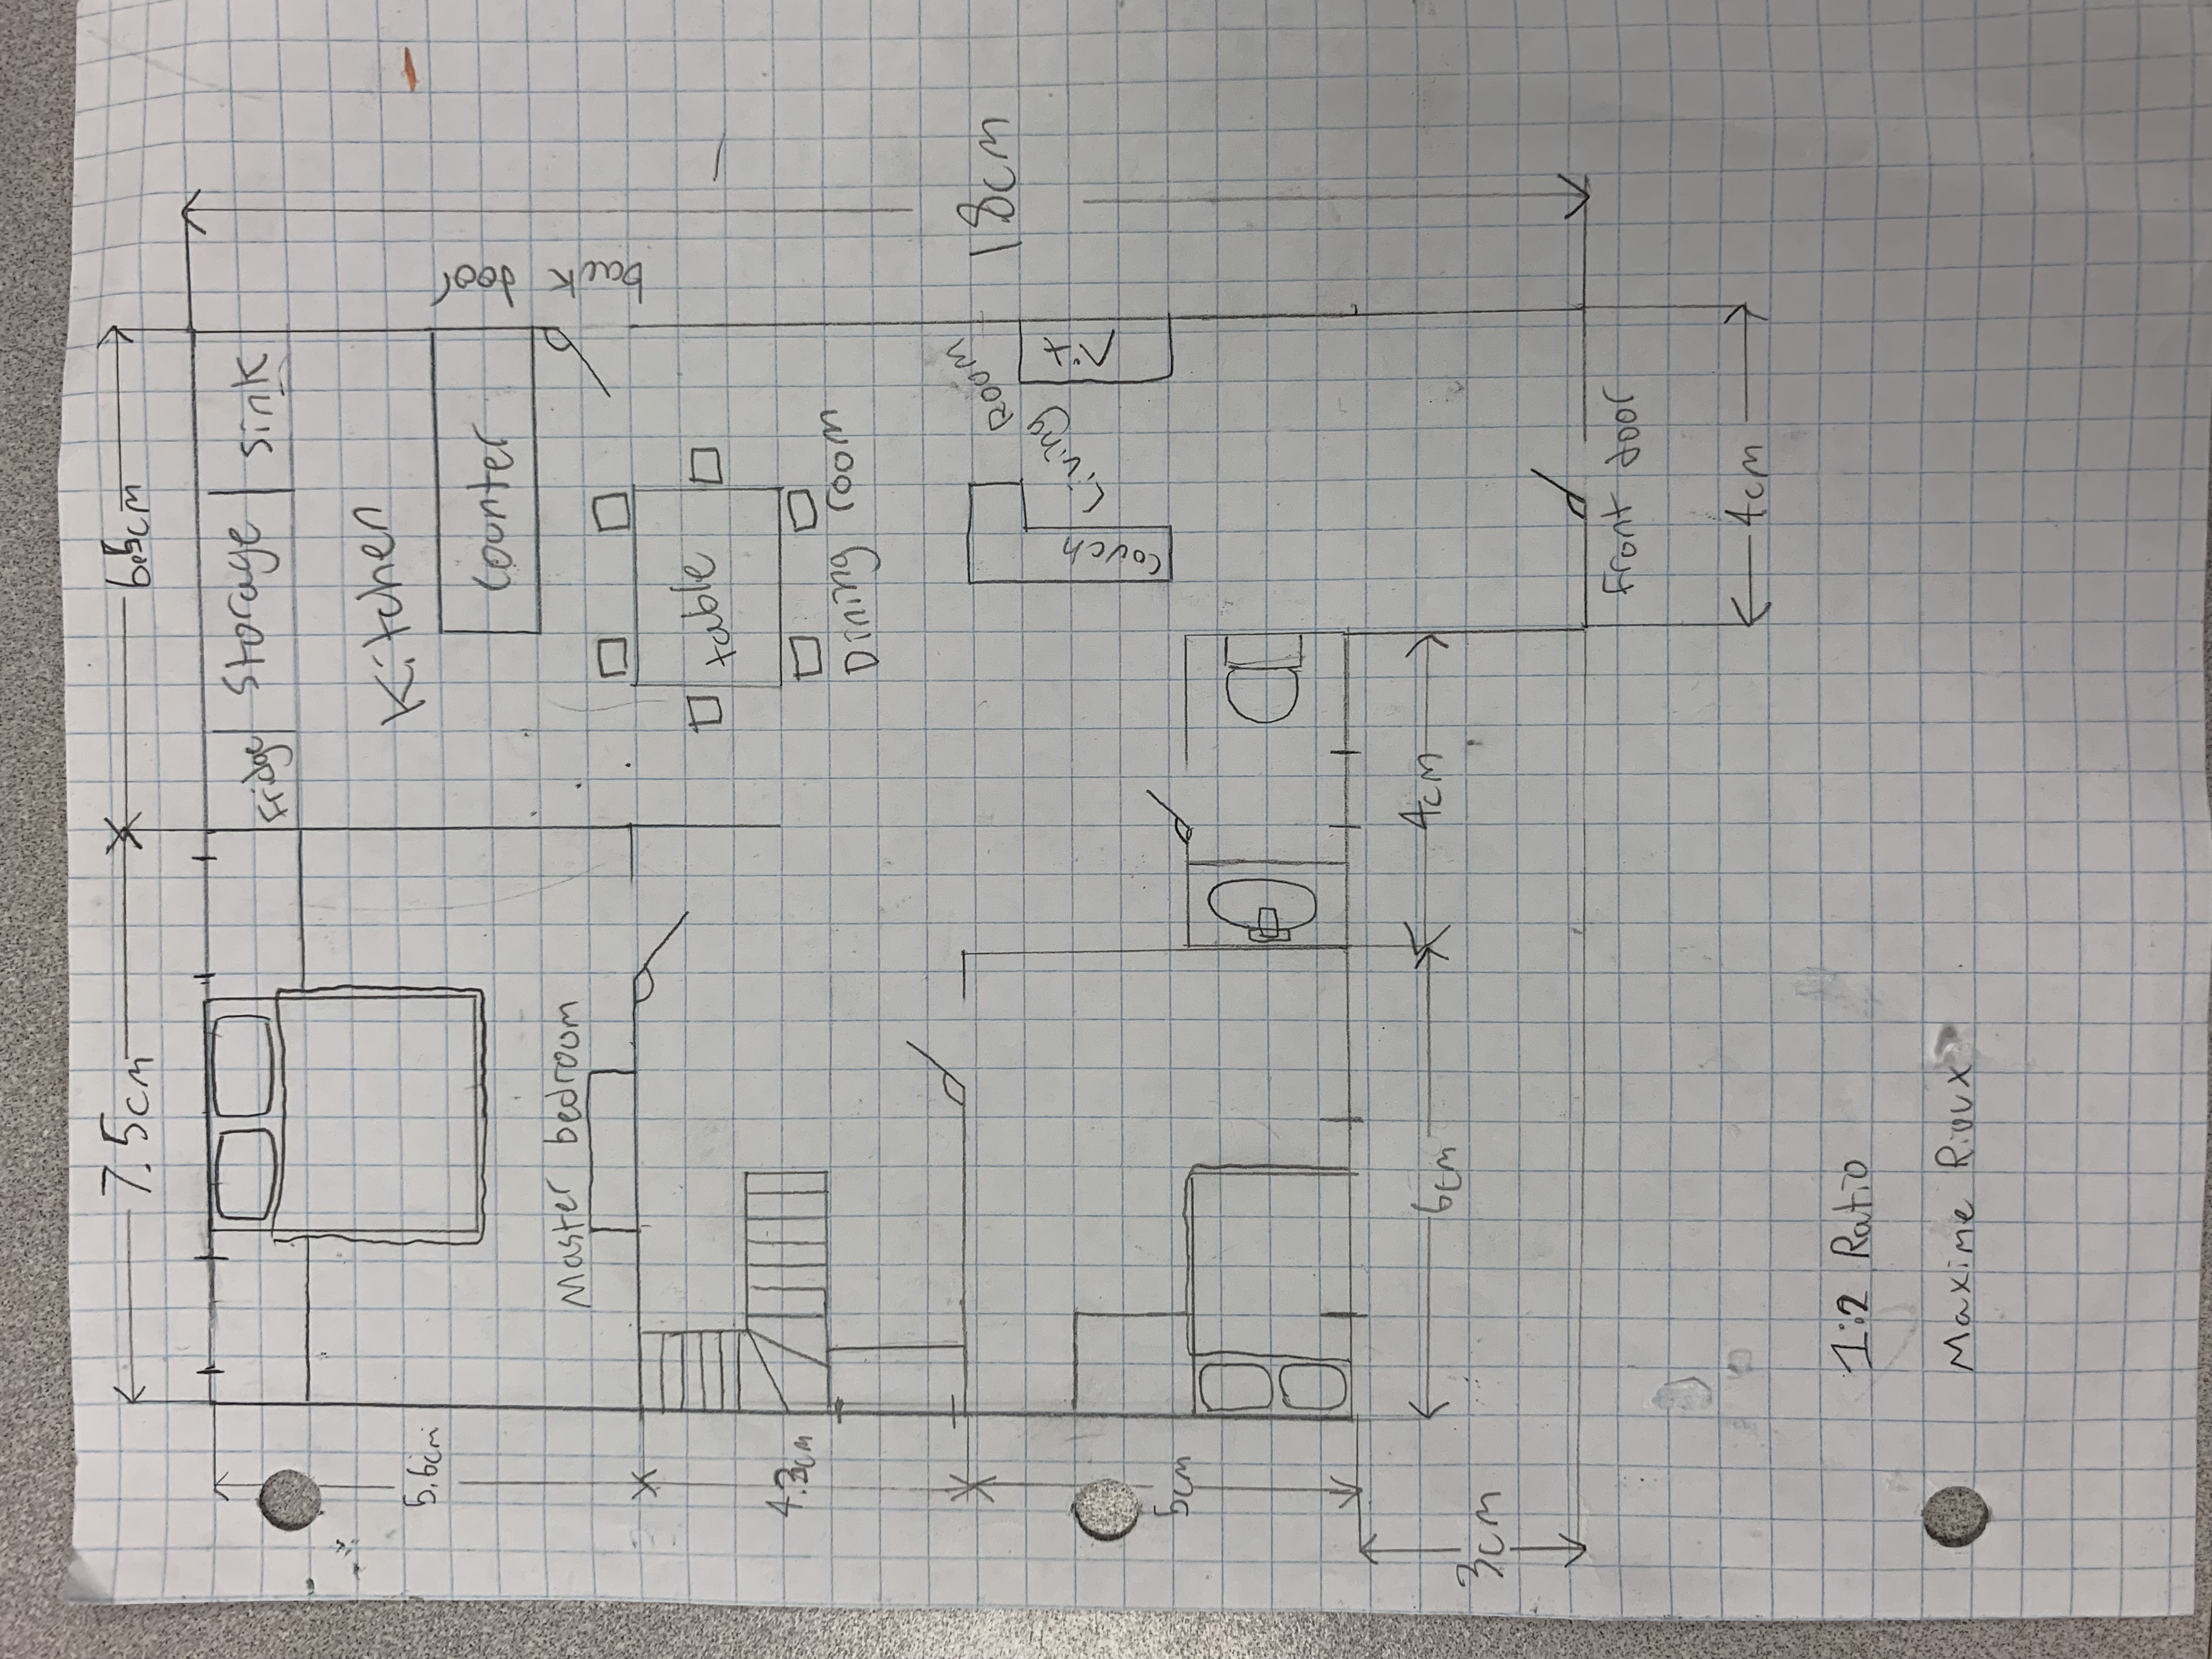 7.5cm
6.5cm
Fridge
Storage
Sink
Kitchen
5.6cm
Counter
back door
Master bedroom
table
4.3cm
Dining room
18cm
Living Room
Couch
T.V
5cm
6cm
4cm
3cm
Front door
4cm
1:2 Ratio
Maxime Rioux